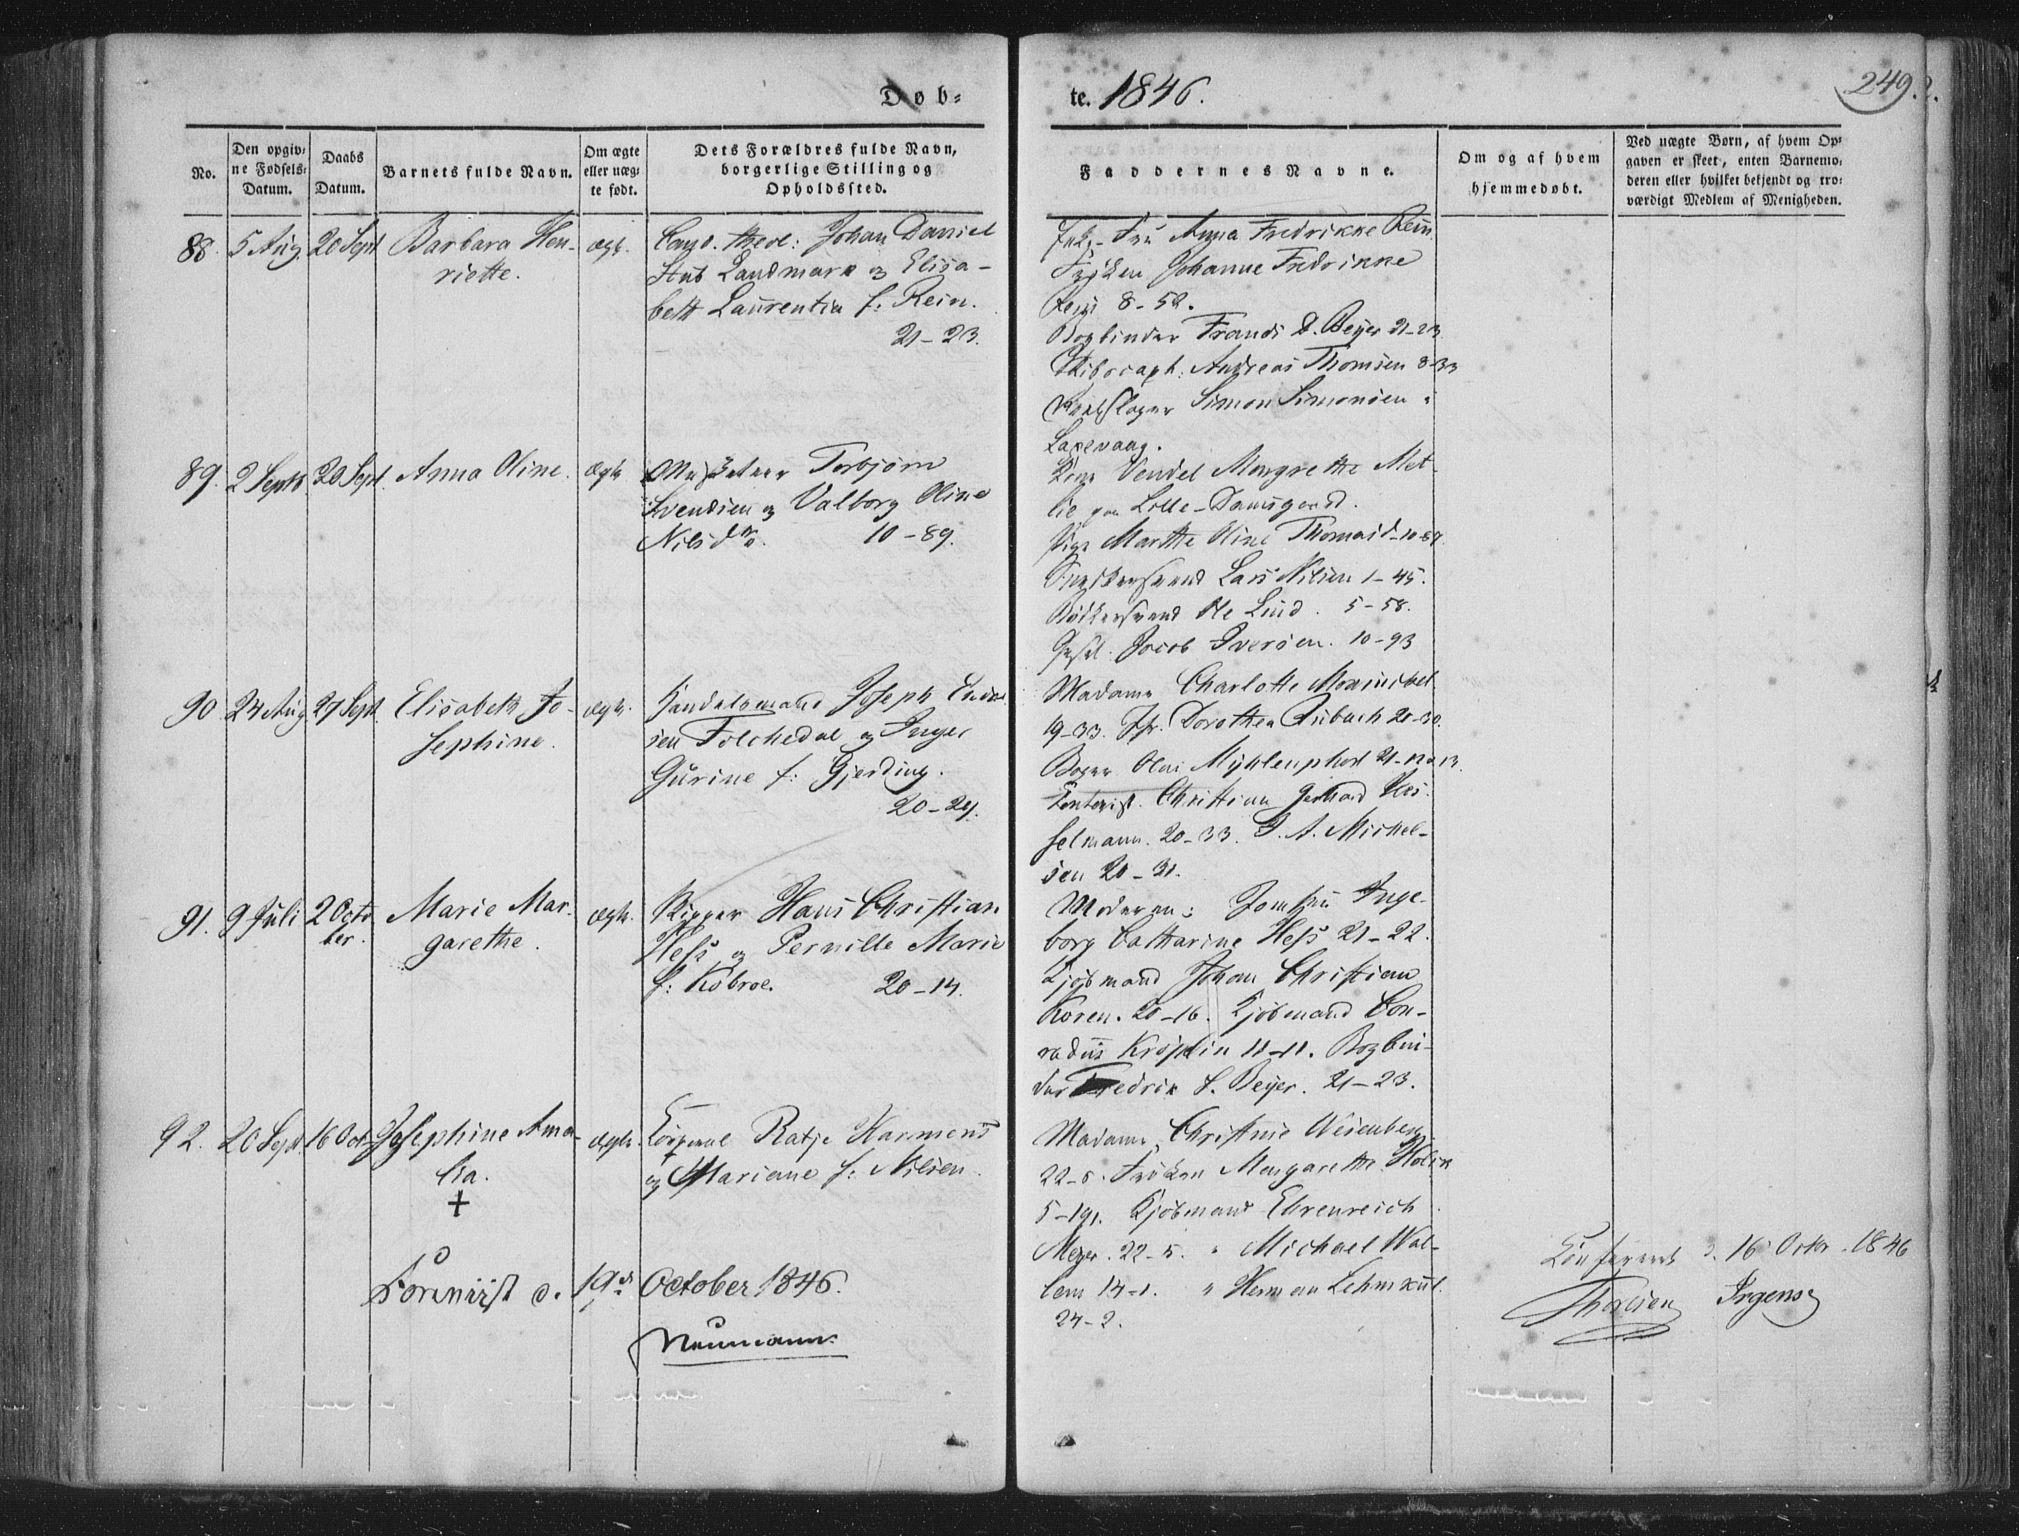 Døb-
te. 1846.
249.
No.
Den opgiv-
ne Fødsels-
Datum.
Daabs
Datum.
Barnets fulde Navn.
Om ægte
eller uæg-
te født.
Dets Forældres fulde Navn,
borgerlige Stilling og
Opholdssted.
Faddernes Navne.
Om og af hvem
hjemmedøbt.
Ved uægte Børn, af hvem Op-
gaven er skeet, enten Barnemo-
deren eller hvilket bekjendt og tro-
værdigt Medlem af Menigheden.
88. 5 Aug 20 Sept Barbara Hen-
riette.
ægt.
Cand. theol: Johan Daniel
Stub Landmark og Elisa-
beth Laurentia f: Rein.
21-23.
Fru Anna Fredrikke Rein
Frøken Johanne Fredrikke
Rein 8-52.
Bogbinder Frands D. Beyer 21-23
Andreas Thomsen 8-33
Simon Simonsen i
Laxevaag.
89. 2 Septb 20 Sept Anna Oline.
ægte
Torbjørn
Svendsen og Valborg Oline
Nilsdr. 10-89.
Kone Vendel Margrethe Met-
lie paa Lille-Damsgaard.
Pige Marthe Oline Thomasd. 10-89.
Lars Nilsen 1-45.
Bødkersvend Ole Lind. 5-58.
Jacob Iversen. 10-93
90 24 Aug 27 Sept Elisabeth Jo-
sephine.
ægte.
Handelsmand Joseph
sen Folkedal og Inger
Gurine f: Gjerding.
20-24.
Madame Charlotte
19-33. Jfr. Dorothea 20-30.
Olai Myhlenphort 21-
Kontorist. Christian Gerhard
selmann. 20-33. J. A. Mickel-
sen 20-31.
91. 9 Juli 2 Octo-
ber.
Marie Mar-
garethe.
ægte.
Kipper Hans Christian
Hess og Pernille Marie
f: Kobroe. 20-14.
Moderen: Jomfru Inge-
borg Catharine Hess 21-22.
Kjøbmand Johan Christian
Koren. 20-16. Kjøbmand Con-
radus Kröplin 11-11. Bogbin-
der Fredrik S. Beyer. 21-23.
92. 20 Sept. 16 Oct Josephine Ama-
lia.
+
ægte.
Corporal Ratje Harmens
og Mariane f: Nilsen.
Madame Christine Wesenberg
22-5. Frøken Margarethe Holck
5-191. Kjøbmand Ehrenreich
Meyer. 22-5. " Michael Wal-
lem 14-1. " Herman Lehmkul.
24-2.
Foreviist d. 19d October 1846.
Neumann.
Confereret d. 16 Octbr. 1846
Thorsen Irgens